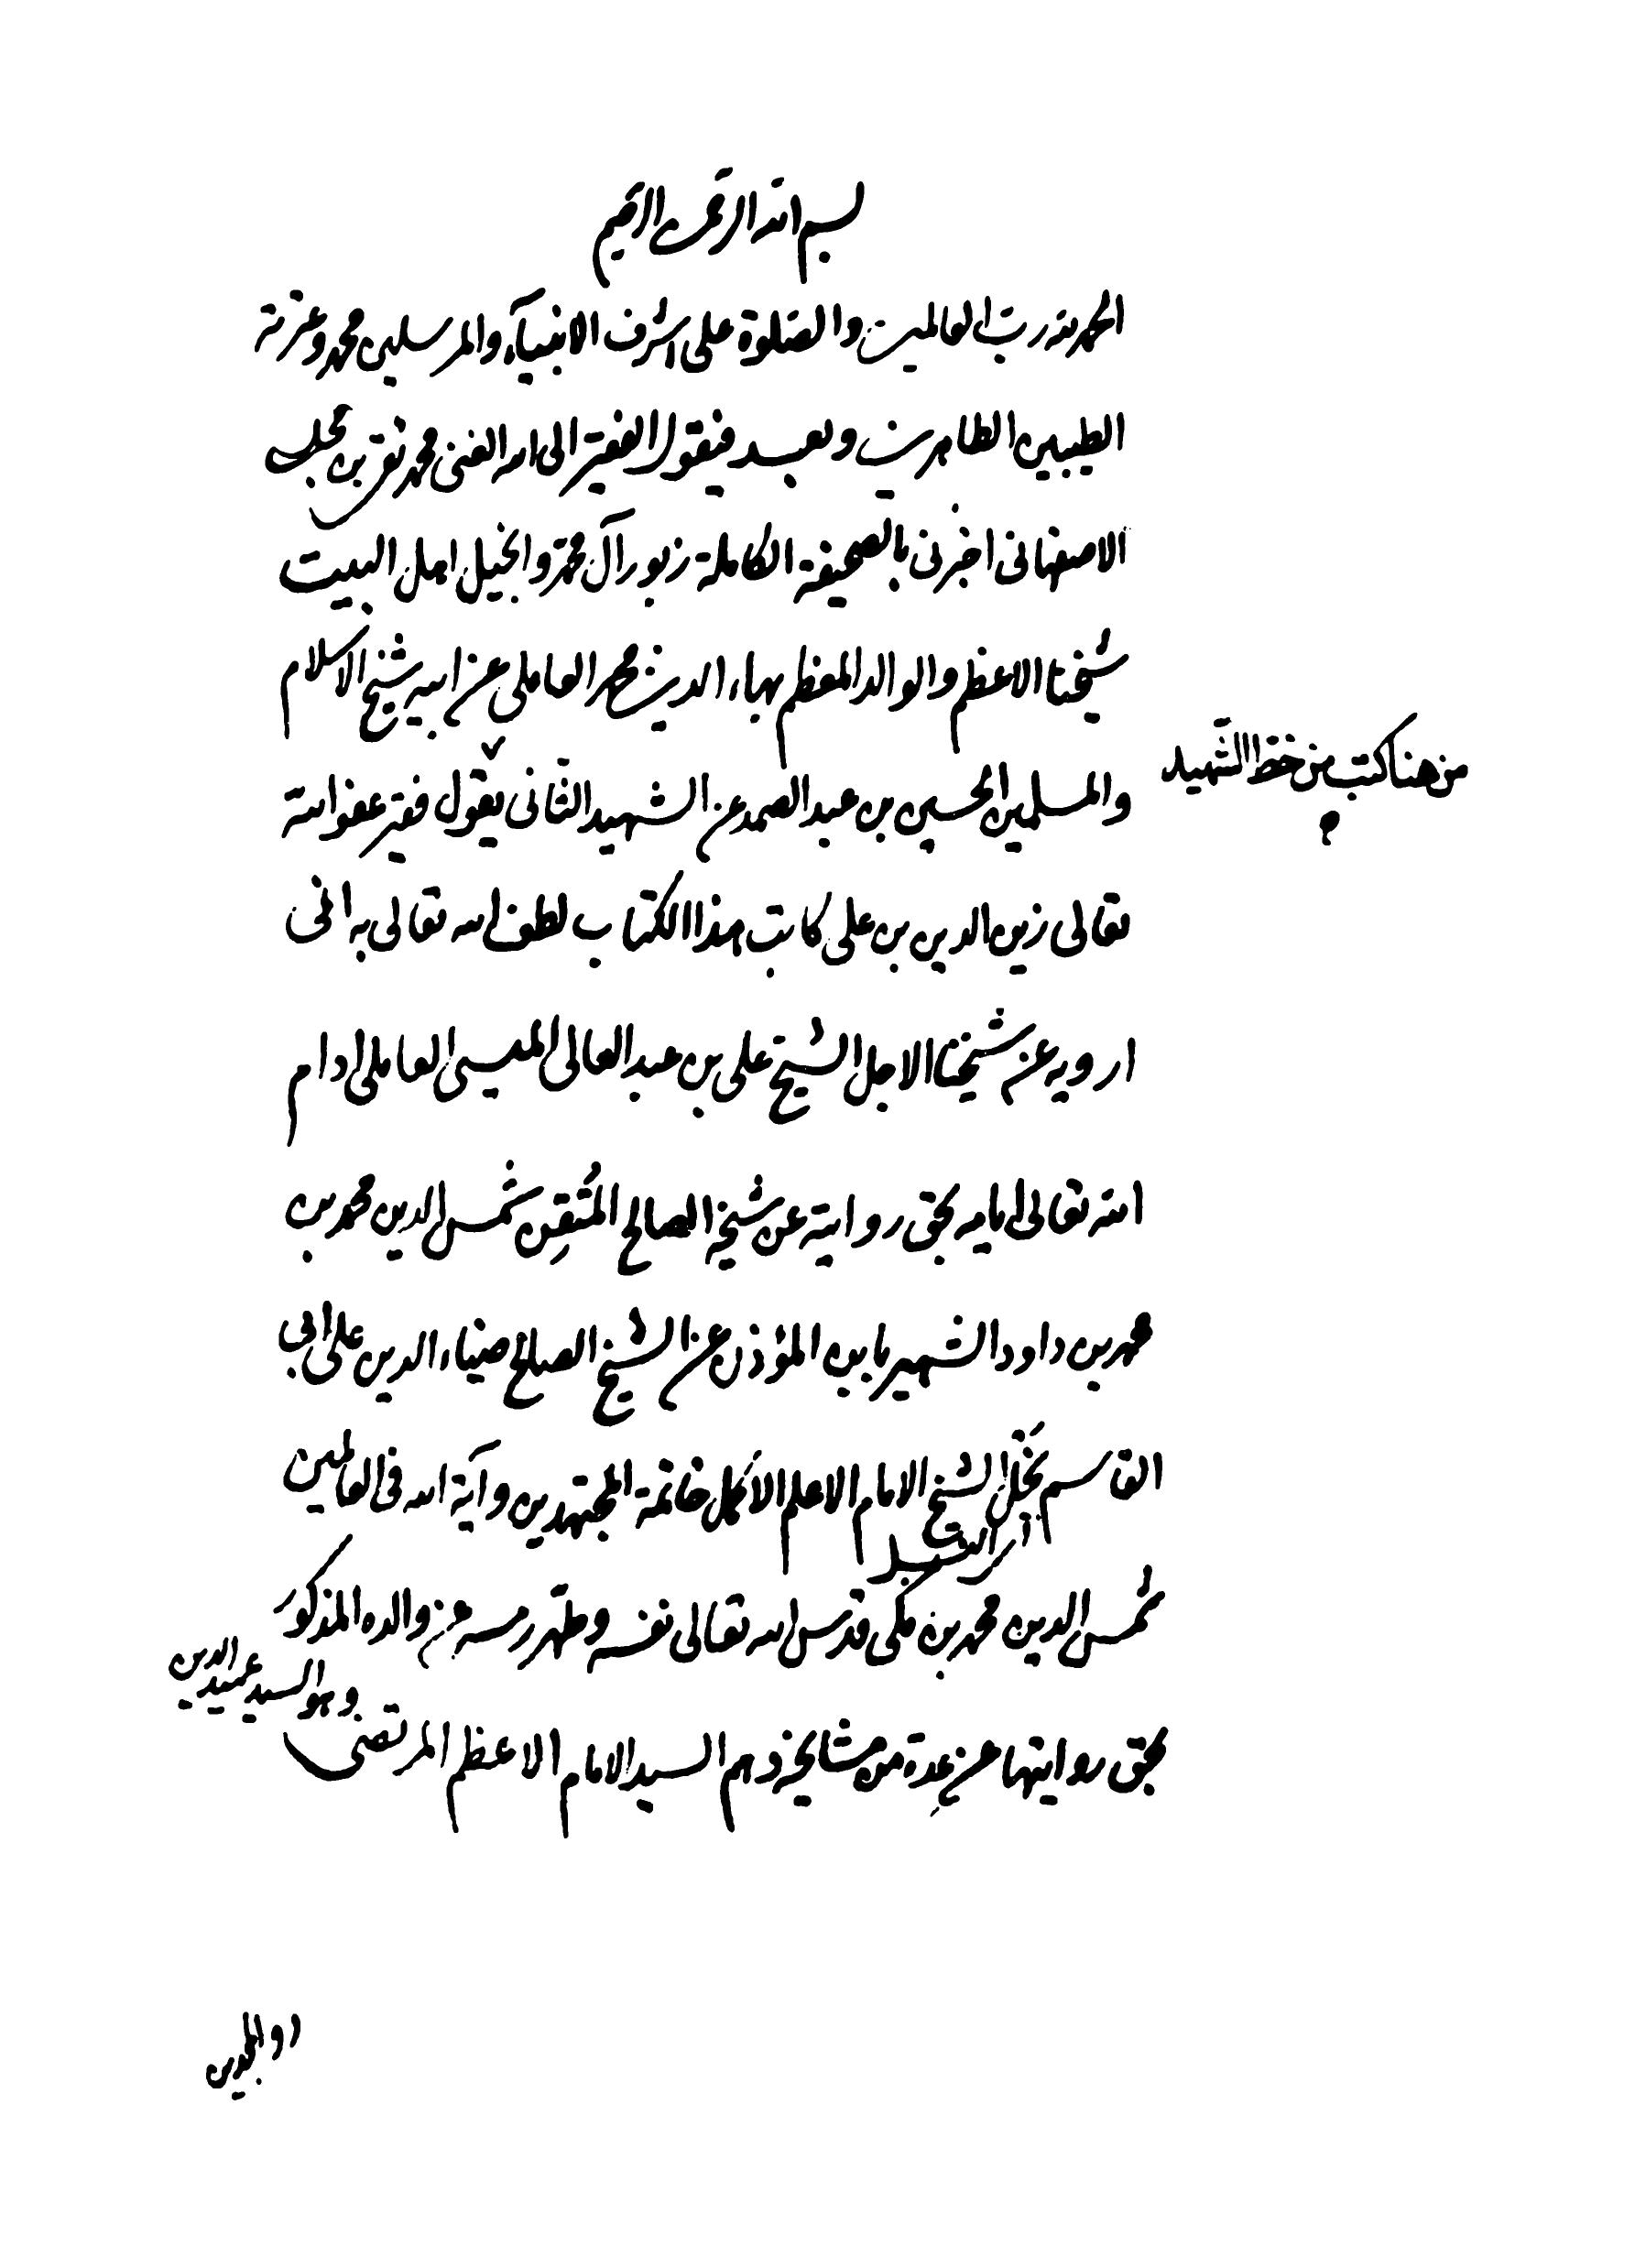 بسم الله الرحمن الرحيم
الحمد لله رب العالمين والصلوة على اشرف الانبيآء والمرسلين محمد وعترته
الطيبين الطاهرين وبعد فيقول الفقير الى الله الغنى محمد تقى بن مجلسى
الاصفهانى اخبرنى بالصحيفة الكاملة زبور آل محمد وانجيل اهل البيت
شيخنا الاعظم والوالد المعظم بهاء الدين محمد العاملى عن ابيه شيخ الاسلام
والمسلمين الحسين بن عبد الصمد عن الشهيد الثانى يقول فقير عفو الله
من هنا كتب من خط الشهيد
تعالى زين الدين بن على كاتب هذا الكتاب لطف الله تعالى به انى
ارويه عن شيخنا الاجل الشيخ على بن عبد العالى الميسى العاملى ادام
الله تعالى ايامه بحق روايته عن شيخه الصالح المتقن شمس الدين محمد بن
محمد بن داود الشهير بابن المؤذن عن الشيخ الصالح ضياء الدين على ابى
القاسم نجل الشيخ الامام الاعلم الاكمل خاتمة المجتهدين وآية الله فى العالمين
شمس الدين محمد بن مكى قدس الله تعالى نفسه وطهر رمسه عن والده المذكور
وهو السيد عميد الدين
بحق روايتها عن عدة من مشايخه وهم السيد الامام الاعظم المرتضى